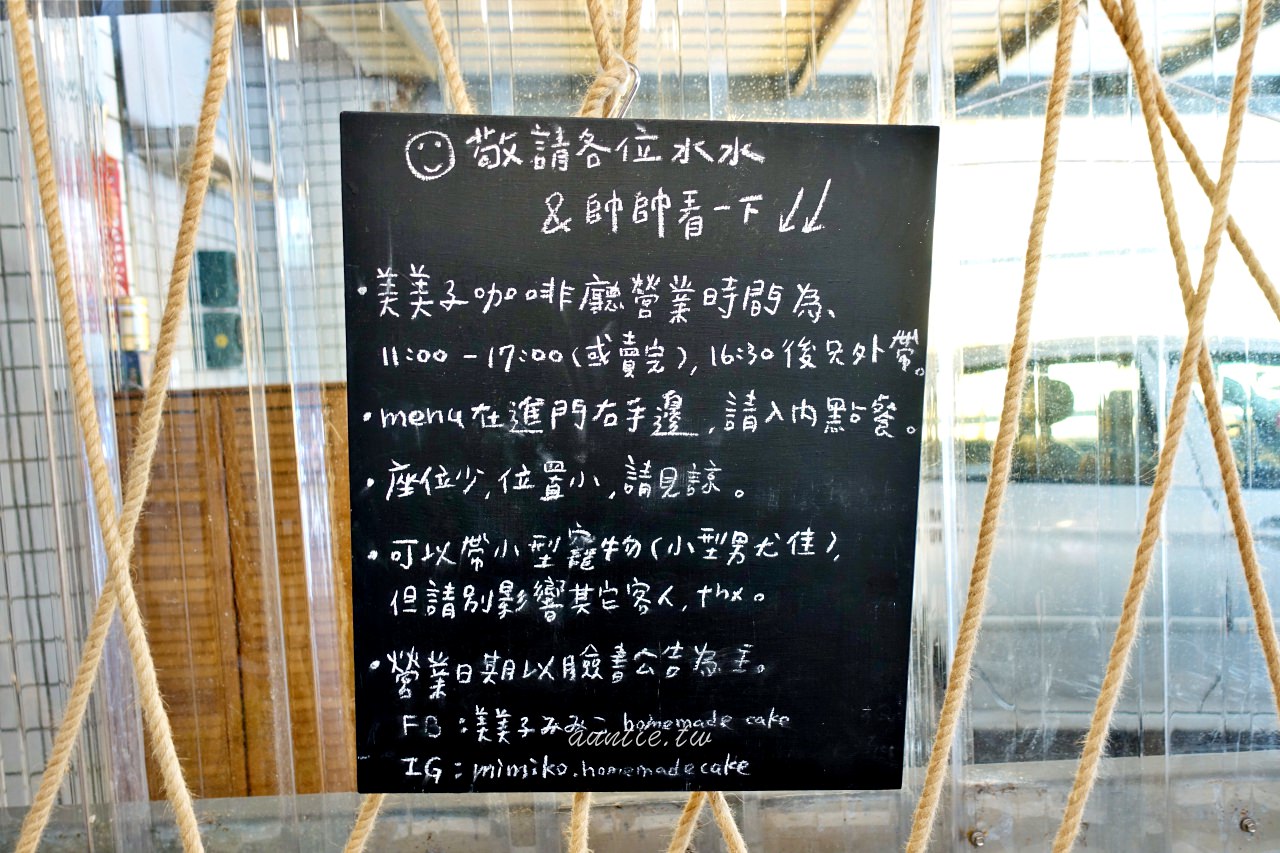 敬請各位水水
&帥帥看一下↙↙
•美美子咖啡廳營業時間為、
11:00-17:00(或賣完),16:30後只外帶。
•menu在進門右手邊,請入內點餐。
•座位少,位置小,請見諒。
•可以帶小型寵物(小型男尤佳),
但請別影響其它客人,thx。
•營業日期以臉書公告為主。
FB:美美子みみこ homemade cake
IG:mimiko.homemadecake
auntie.tw